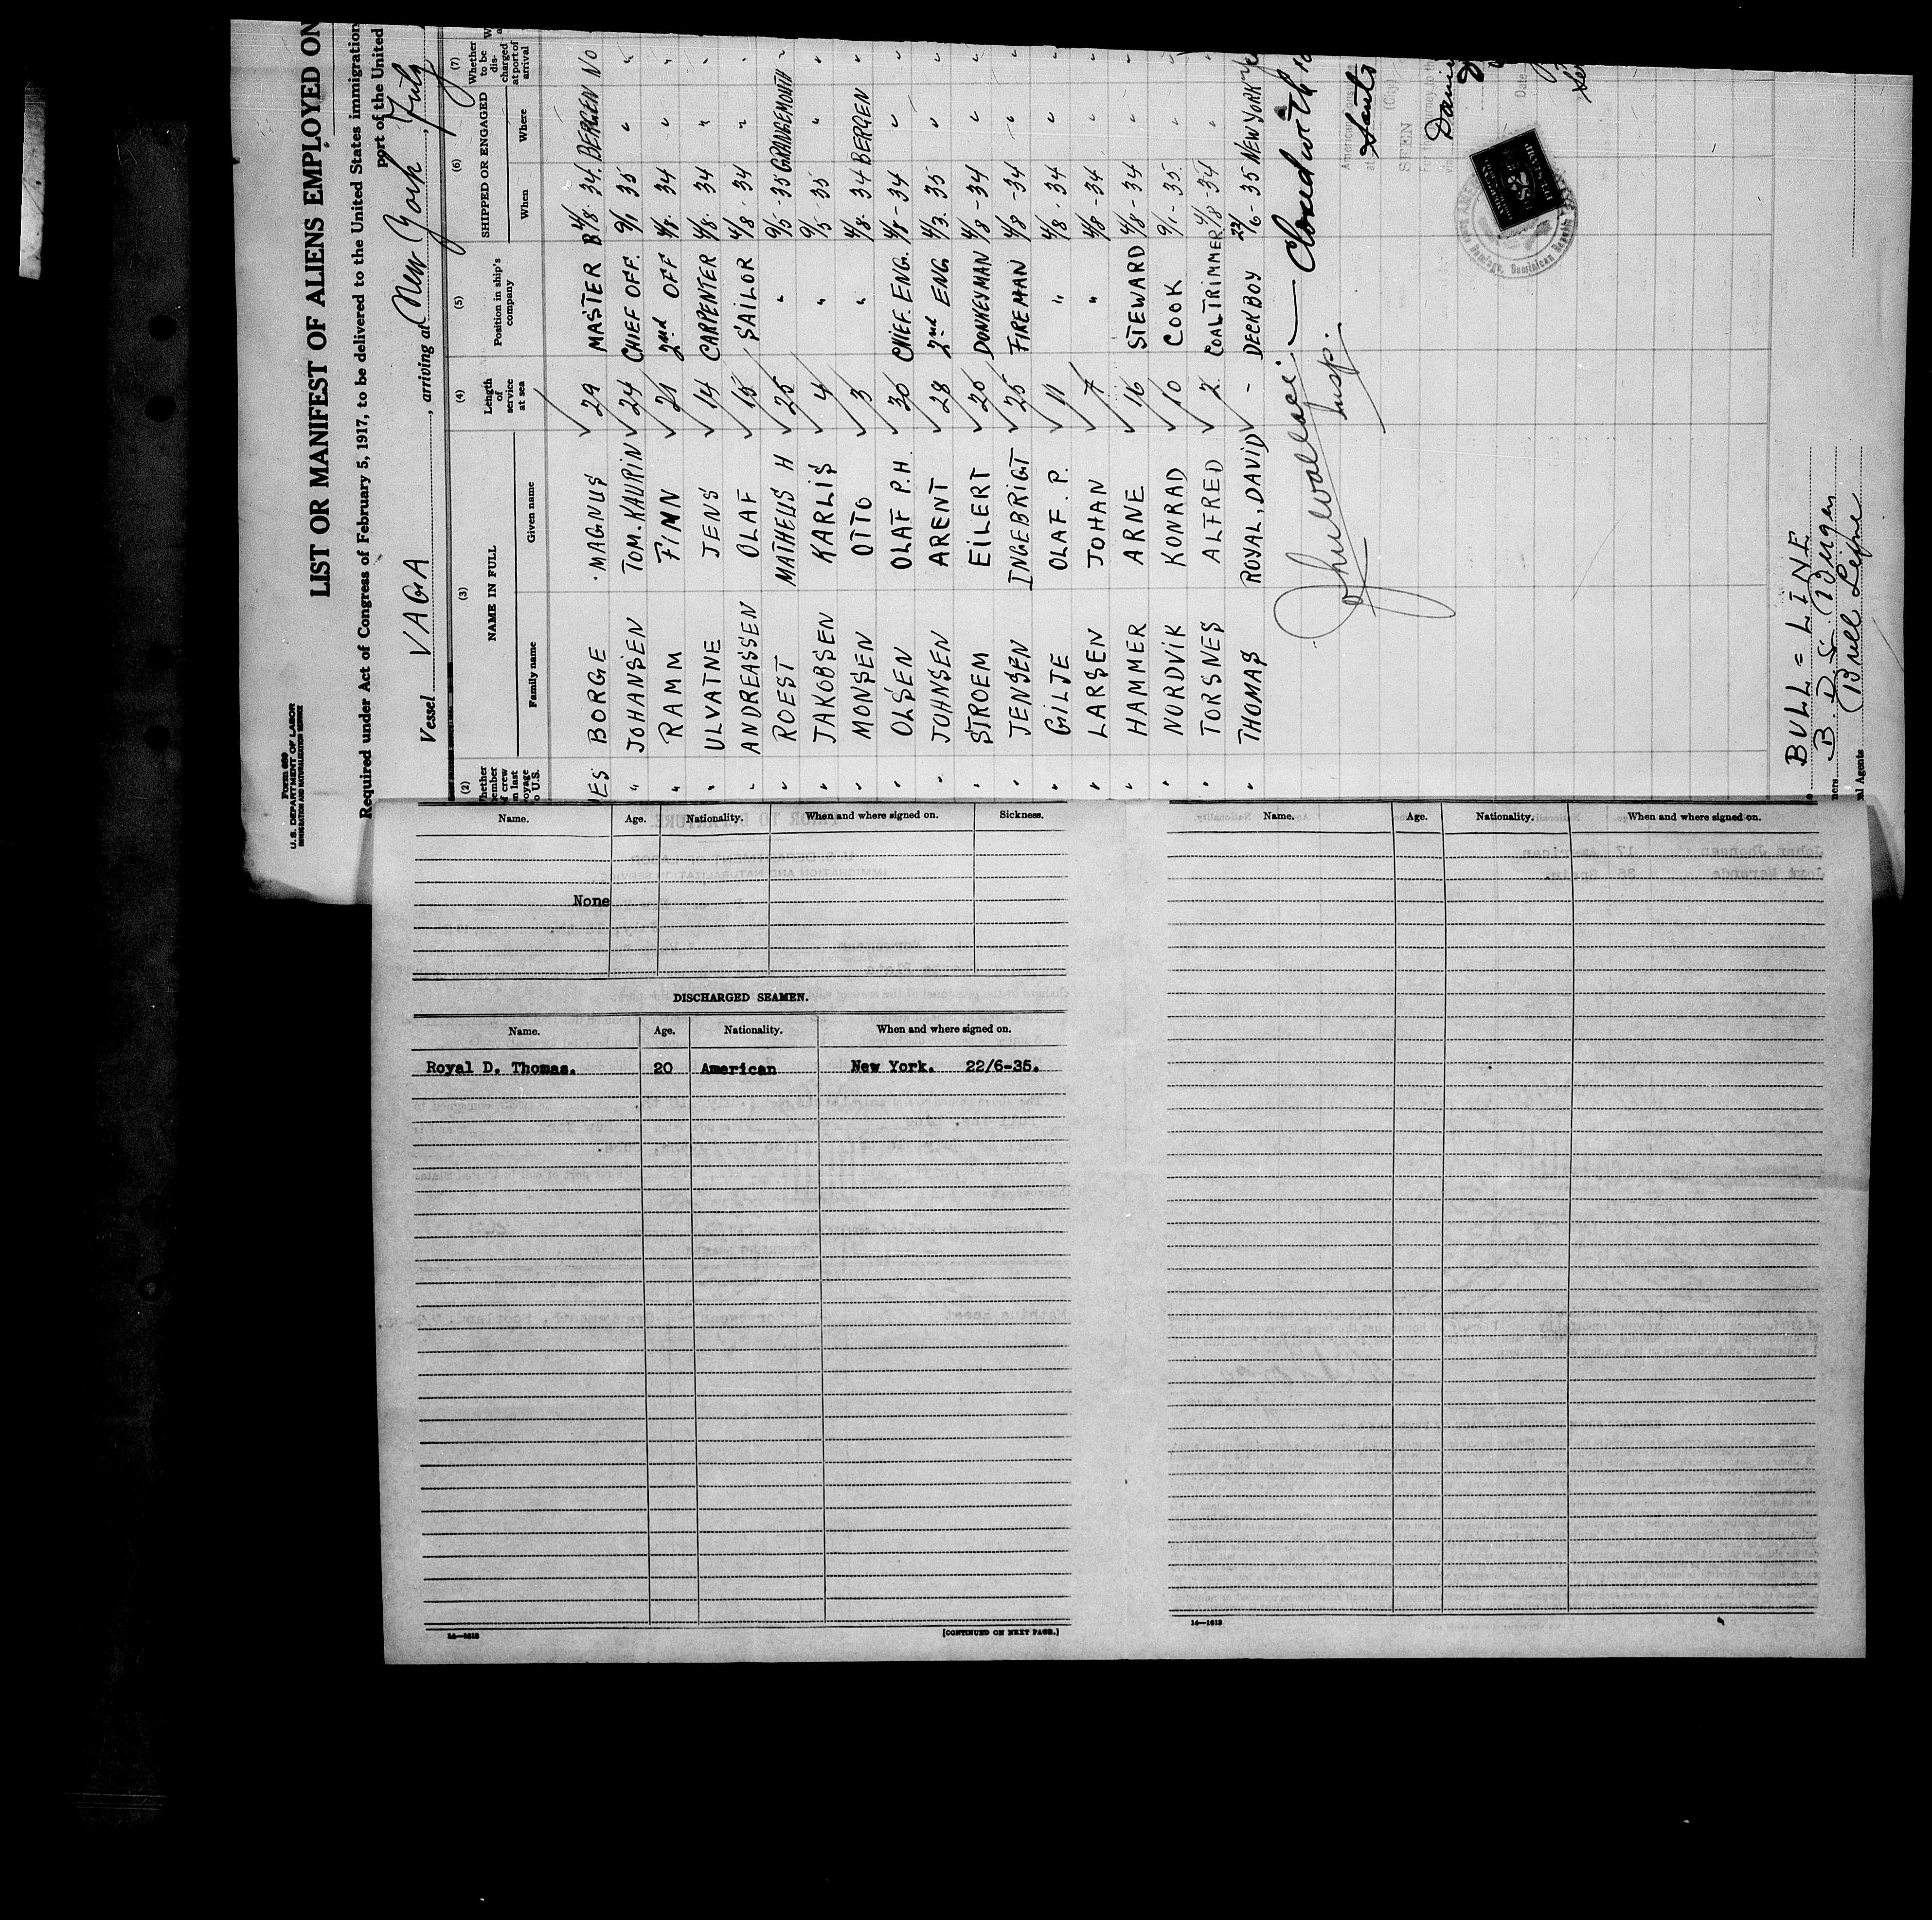 Form 680
U.S. DEPARTMENT OF LABOR
IMMIGRATION AND NATURALIZATION SERVICE
LIST OR MANIFEST OF ALIENS EMPLOYED ON
Required under Act of Congress of February 5, 1917, to be delivered to the United States immigration
port of the United
Vessel VAGA, arriving at New York, July
(2) (3) (4) (5) (6) (7)
NAME IN FULL Length of service at sea Position in ship's company SHIPPED OR ENGAGED Whether to be discharged at port of arrival
Family name Given name When Where
ES BORGE MAGNUS 29 MASTER 4/8-34 BERGEN NO
" JOHANSEN TOM. KAURIN 24 CHIEF OFF. 9/1 35 " "
" RAMM FINN 21 2nd OFF 4/8-34 " "
" ULVATNE JENS 14 CARPENTER 4/8-34 " "
" ANDREASSEN OLAF 15 SAILOR 4/8-34 " "
" ROEST MATHEUS H 25 " 9/5-35 GRANGEMOUTH "
" JAKOBSEN KARLIS 4 " 9/5-35 " "
" MONSEN OTTO 3 " 4/8-34 BERGEN "
" OLSEN OLAF P.H. 30 CHIEF. ENG. 4/8-34 " "
" JOHNSEN ARENT 28 2nd ENG. 4/3-35 " "
" STROEM EILERT 20 DONKEYMAN 4/8-34 " "
" JENSEN INGEBRIGT 25 FIREMAN 4/8-34 " "
" GILJE OLAF. P. 11 " 4/8-34 " "
" LARSEN JOHAN 7 " 4/8-34 " "
" HAMMER ARNE 16 STEWARD 4/8-34 " "
" NORDVIK KONRAD 10 COOK 9/1-35. " "
" TORSNES ALFRED 2 COALTRIMMER 4/8-34 " "
" THOMAS ROYAL, DAVID - DECKBOY 22/6-35 NEW YORK
Closed with
Insp.
American
at Santo
(City)
SEEN
For the journey to the
via
Date
BULL = LINE
B. D. S. Bergen
Agents
Name. Age. Nationality. When and where signed on. Sickness.
None
DISCHARGED SEAMEN.
Name. Age. Nationality. When and where signed on.
Royal D. Thomas. 20 American New York. 22/6-35.
14—1613
[CONTINUED ON NEXT PAGE.]
Name. Age. Nationality. When and where signed on.
14—1613